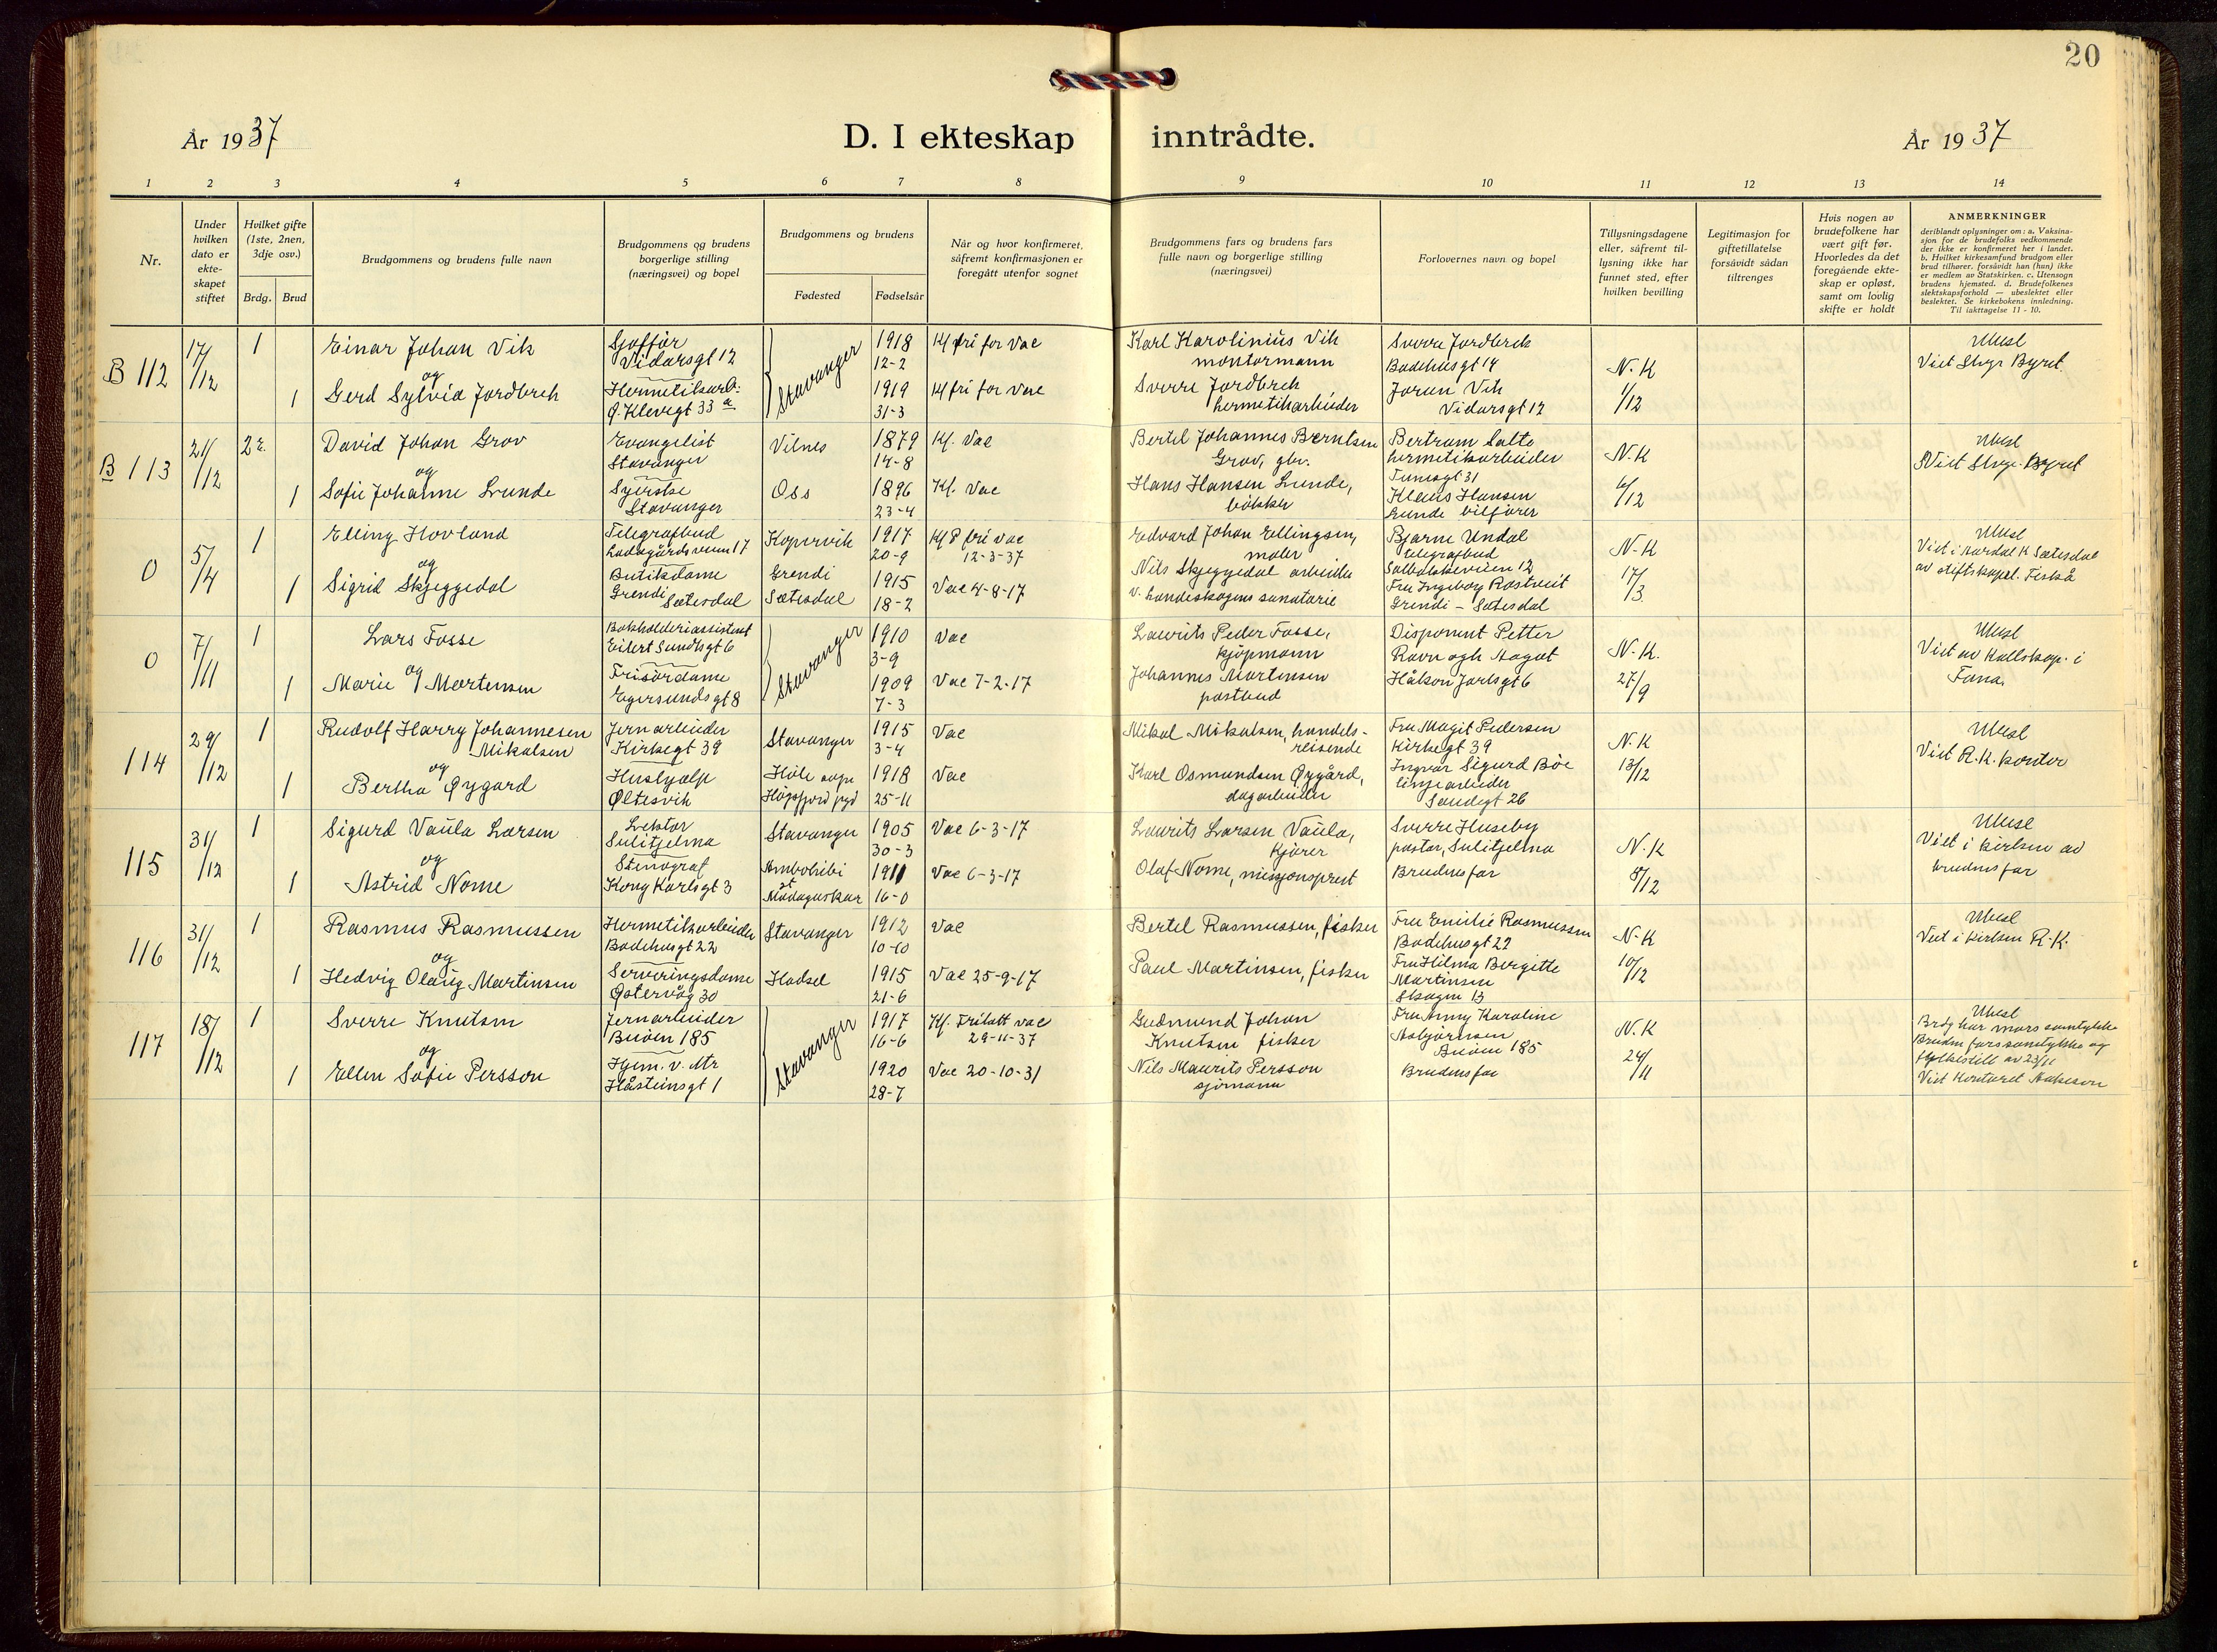 20
År 1937
D. I ekteskap inntrådte.
År 1937
1 2 3 4 5 6 7 8 9 10 11 12 13 14
Nr.
Under hvilken dato er ekte-skapet stiftet
Hvilket gifte (1ste, 2nen, 3dje osv.)
Brdg. Brud
Brudgommens og brudens fulle navn
Brudgommens og brudens borgerlige stilling (næringsvei) og bopel
Brudgommens og brudens
Fødested Fødselsår
Når og hvor konfirmeret, såfremt konfirmasjonen er foregått utenfor sognet
Brudgommens fars og brudens fars fulle navn og borgerlige stilling (næringsvei)
Forlovernes navn og bopel
Tillysningsdagene eller, såfremt til-lysning ikke har funnet sted, efter hvilken bevilling
Legitimasjon for giftetillatelse forsåvidt sådan tiltrenges
Hvis nogen av brudefolkene har vært gift før. Hvorledes da det foregående ekte-skap er opløst, samt om lovlig skifte er holdt
ANMERKNINGER
deriblandt oplysninger om: a. Vaksina-
sjon for de brudefolks vedkommende
der ikke er konfirmeret her i landet.
b. Hvilket kirkesamfund brudgom eller
brud tilhører, forsåvidt han (hun) ikke
er medlem av Statskirken. c. Utensogn
brudens hjemsted. d. Brudefolkenes
slektskapsforhold — ubeslektet eller
beslektet. Se kirkebokens innledning.
Til iakttagelse 11 - 10.
B 112 17/12 1 Einar Johan Vik
Sjåffør
Vidarsgt 12
Stavanger
1918
12-2
Kf fri for Vac
Karl Karolinius Vik
montørmann
Sverre Jordbrek
Badehusgt 14
N.K
1/12
Ubesl
Viet Stvgr Byret.
og
1 Gerd Sylvia Jordbrek
Hermetikarb:
G. Klevegt 33 a
1919
31-3
Kf fri for Vac
Sverre Jordbrek
hermetikarbeider
Jorun Vik
Vidarsgt 12
B 113 21/12 2. David Johan Grov
Evangelist
Stavanger
Vilnes
1879
14-8
Kf. Vac
Bertel Johannes Berntsen
Grov, gbr.
Bertram Salte
hermetikarbeider
Tunesgt 31
N.K
6/12
Ubesl
Viet Stvgr. Byret
og
1 Sofie Johanne Lunde
Syerske
Stavanger
Oss
1896
23-4
Kf. Vac
Hans Hansen Lunde,
bøkker
Klaus Hansen
Lunde bilfører
0 5/4 1 Elling Hovland
Telegrafbud
Ladegårdsveien 17
Kopervik
1917
20-9
Kf fri vac
12-3-37
Edvard Johan Ellingsen,
maler
Bjarne Undal
telegrafbud
Solbakkeveien 12
N-K
17/3
Ubesl
Viet i Aardal K Sætesdal
av stiftskapel. Fiskå
og
1 Sigrid Skjeggedal
Butikdame
Grendi
Sætesdal
Grendi
Sætesdal
1915
18-2
Vac 4-8-17
Nils Skjeggedal arbeider
v. Landeskogens sanatorie
Fru Ingeborg Rostveit
Grendi - Sætesdal
0 7/11 1 Lars Fosse
Bokholderiassistent
Eilert Sundtsgt 6
Stavanger
1910
3-9
Vac
Laurits Peder Fosse,
kjøpmann
Disponent Petter
Ravn og h Aagot
Håkon Jarlsgt 6
N-K.
27/9
Ubesl
Viet av Kallskap. i
Fana.
og
1 Marie Martensen
Frisørdame
Egersundsgt 8
1909
7-3
Vac 7-2-17
Johannes Martensen
postbud
114 29/12 1 Rudolf Harry Johannesen
Mikalsen
Jernarbeider
Kirkegt 39
Stavanger
1915
3-4
Vac
Mikal Mikalsen, handels-
reisende
Fru Magit Pedersen
Kirkegt 39
N.K
13/12
Ubesl
Viet R.K. kontor
og
1 Bertha Øygard
Hushjælp
Øltesvik
Høle sogn
Høgsfjord pgd
1918
25-11
Vac
Karl Osmundsen Øygård,
dagarbeider
Ingvar Sigurd Bøe
linjearbeider
Sandegt 26
115 31/12 1 Sigurd Vaula Larsen
Lektor
Sulitjelma
Stavanger
1905
30-3
Vac 6-3-17
Laurits Larsen Vaula,
kjører
Sverre Huseby
pastor, Sulitjelma
N.K
8/12
Ubesl
Viet i kirken av
brudens far
og
1 Astrid Nome
Stenograf
Kong Karlsgt 3
Ambohibi
Madagaskar
1911
16-
Vac 6-3-17
Olaf Nome, misjonsprest
Brudens far
116 31/12 1 Rasmus Rasmussen
Hermetikarbeider
Badehusgt 22
Stavanger
1912
10-10
Vac
Bertel Rasmussen, fisker
Fru Emilie Rasmussen
Badehusgt 22
N-K
10/12
Ubesl
Viet i kirken R-K.
og
1 Hedvig Olaug Martinsen
Serveringsdame
Østervåg 30
Hadsel
1915
21-6
Vac 25-9-17
Paul Martinsen, fisker
Fru Hilma Bergitte
Martinsen
Skagen 13
117 18/12 1 Sverre Knutsen
Jernarbeider
Buøen 185
Stavanger
1917
16-6
Kf. Fritatt vac
29-11-37
Gudmund Johan
Knutsen fisker
Fru Anny Karoline
Asbjørnsen
Buøen 185
N.K
24/11
Ubesl
Brdg har mors samtykke
Bruden fars samtykke og
fylkestill av 23/11
Viet Kontoret
og
1 Ellen Sofie Persson
Hjem. v. Mr
Håsteinsgt 1
1920
28-7
Vac 20-10-31
Nils Maurits Persson
sjømann
Brudens far